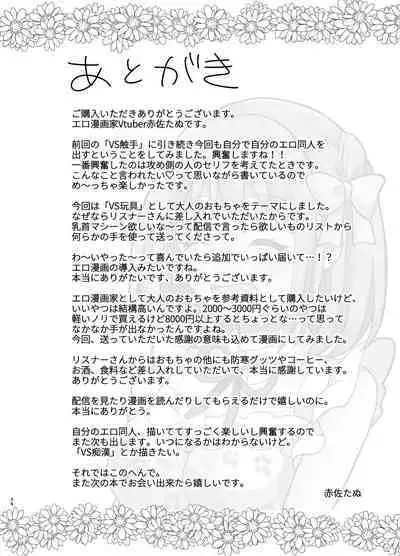 あとがき
ご購入いただきありがとうございます。
エロ漫画家Vtuber赤佐たぬです。
前回の「VS触手」に引き続き今回も自分で自分のエロ同人を
出すということをしてみました。興奮しますね！！
一番興奮したのは攻め側の人のセリフを考えてたときです。
こんなこと言われたい♡って思いながら書いているので
め〜っちゃ楽しかったです。
今回は「VS玩具」として大人のおもちゃをテーマにしました。
なぜならリスナーさんに差し入れでいただいたからです。
乳首マシーン欲しいな〜って配信で言ったら欲しいものリストから
何らかの手を使って送ってくださって。
わ〜いやった〜って喜んでいたら追加でいっぱい届いて…！？
エロ漫画の導入みたいですね。
本当にありがたいです、ありがとうございます。
エロ漫画家として大人のおもちゃを参考資料として購入したいけど、
いいやつは結構高いんですよ。2000〜3000円ぐらいのやつは
軽いノリで買えるけど8000円以上するとちょっとな…って思って
なかなか手が出なかったんですよね。
今回、送っていただいた感謝の意味も込めて漫画にしてみました。
リスナーさんからはおもちゃの他にも防寒グッツやコーヒー、
お酒、食料など差し入れしていただいて、本当に感謝しています。
ありがとうございます。
配信を見たり漫画を読んだりしてもらえるだけで嬉しいのに。
本当にありがとう。
自分のエロ同人、描いててすっごく楽しいし興奮するので
また次も出します。いつになるかはわからないけど。
「VS痴漢」とか描きたい。
それではこのへんで。
また次の本でお会い出来たら嬉しいです。
赤佐たぬ